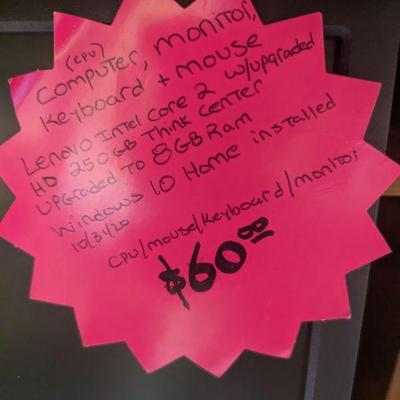 (CPU)
Computer, monitor,
Keyboard + mouse
Lenovo Intel Core 2 w/upgraded
HD 250GB Think Center
upgraded to 8GB Ram
Windows 10 Home installed
10/31/20
CPU/mouse/Keyboard/monitor
$60.00